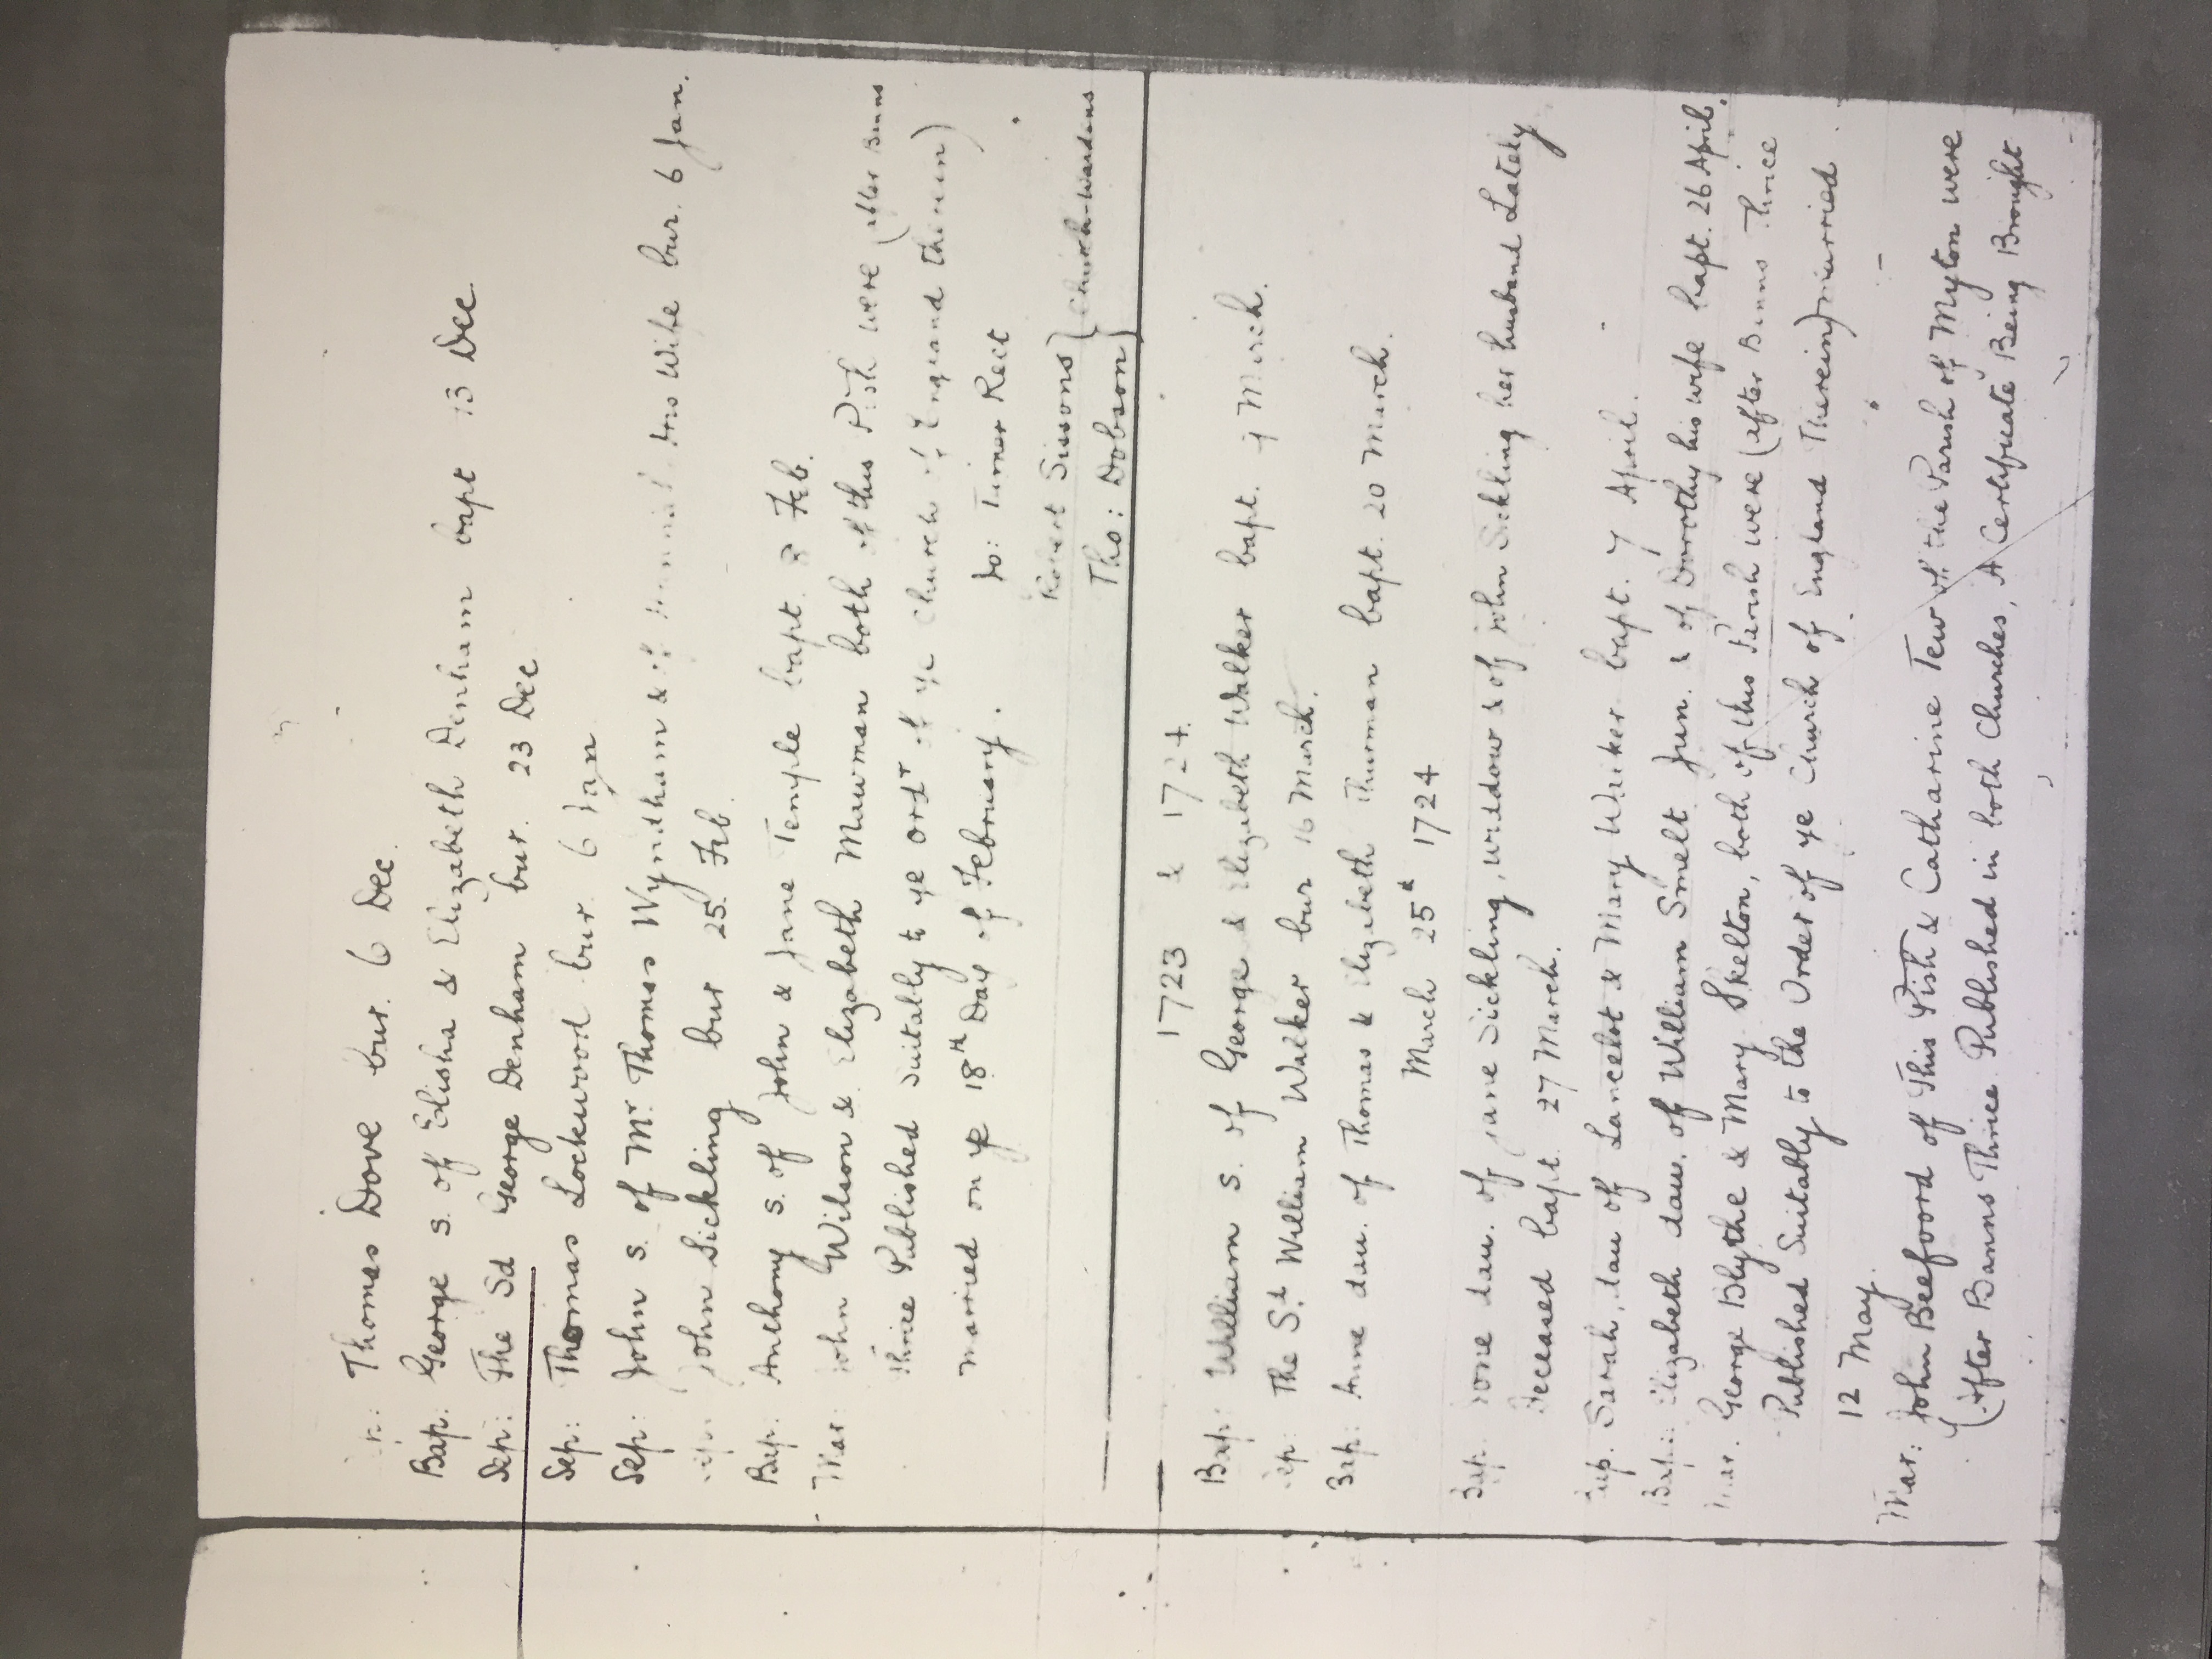 Thomas Dove bur. 6 Dec.
Bap: George s. of Elisha & Elizabeth Denham bapt 13 Dec
Sep: The Sd George Denham bur. 23 Dec
Sep: Thomas Lockwood bur. 6 Jan
Sep: John s. of Mr. Thomas Wyndham & of his Wife bur. 6 Jan.
John Sickling bur 25. Feb.
Bap. Anthony s. of John & Jane Temple bapt. 2 Feb.
Mar: John Wilson & Elizabeth Mawman both of this Pish were (after Banns
thrice Published Suitably to ye ordr of ye Church of England therein)
married on ye 18th Day of February.
Jo: Turner Rect
Robert Sissons } Church-Wardens
Tho: Dobson }
1723 & 1724.
Bap: William s. of George & Elizabeth Walker bapt. 9 March.
Sep: The Sd. William Walker bur 16 March.
Bap: Anne dau. of Thomas & Elizabeth Thurman bapt. 20 March.
March 25th 1724
Bap. Jane dau. of Jane Sickling, widdow & of John Sickling her husband Lately
Deceased bapt. 27 March.
Bap. Sarah, dau of Lancelot & Mary Walker bapt. 7 April.
Bap: Elizabeth dau. of William Smelt Jun. & of Dorothy his wife bapt. 26 April.
Mar. George Blythe & Mary Skelton, both of this Parish were (after Banns Thrice
Published Suitably to the Order of ye Church of England Therein) married
12 May.
Mar: John Beeford of This Pish & Catharine Tew of the Parish of Myton were
(After Banns Thrice Published in both Churches, A Certificate Being Brought